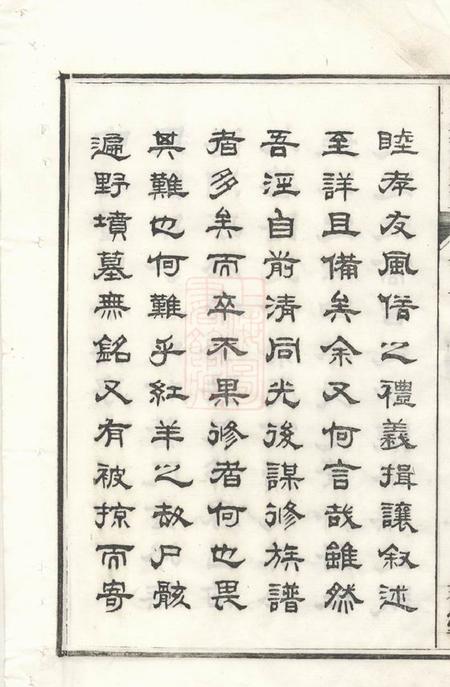 睦孝友風俗之禮義揖讓叙述
至詳且備矣余又何言哉雖然
吾涇自前清同光後謀修族譜
者多矣而卒不果修者何也畏
其難也何難乎紅羊之劫尸骸
遍野墳墓無銘又有被掠而寄